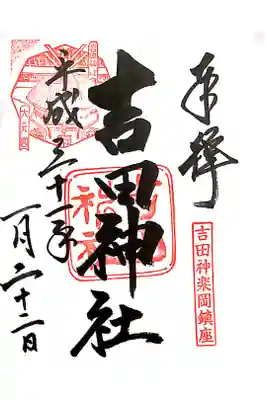 奉拝
吉田神楽岡鎮座
吉田神社
平成三十一年
一月二十二日
大元宮